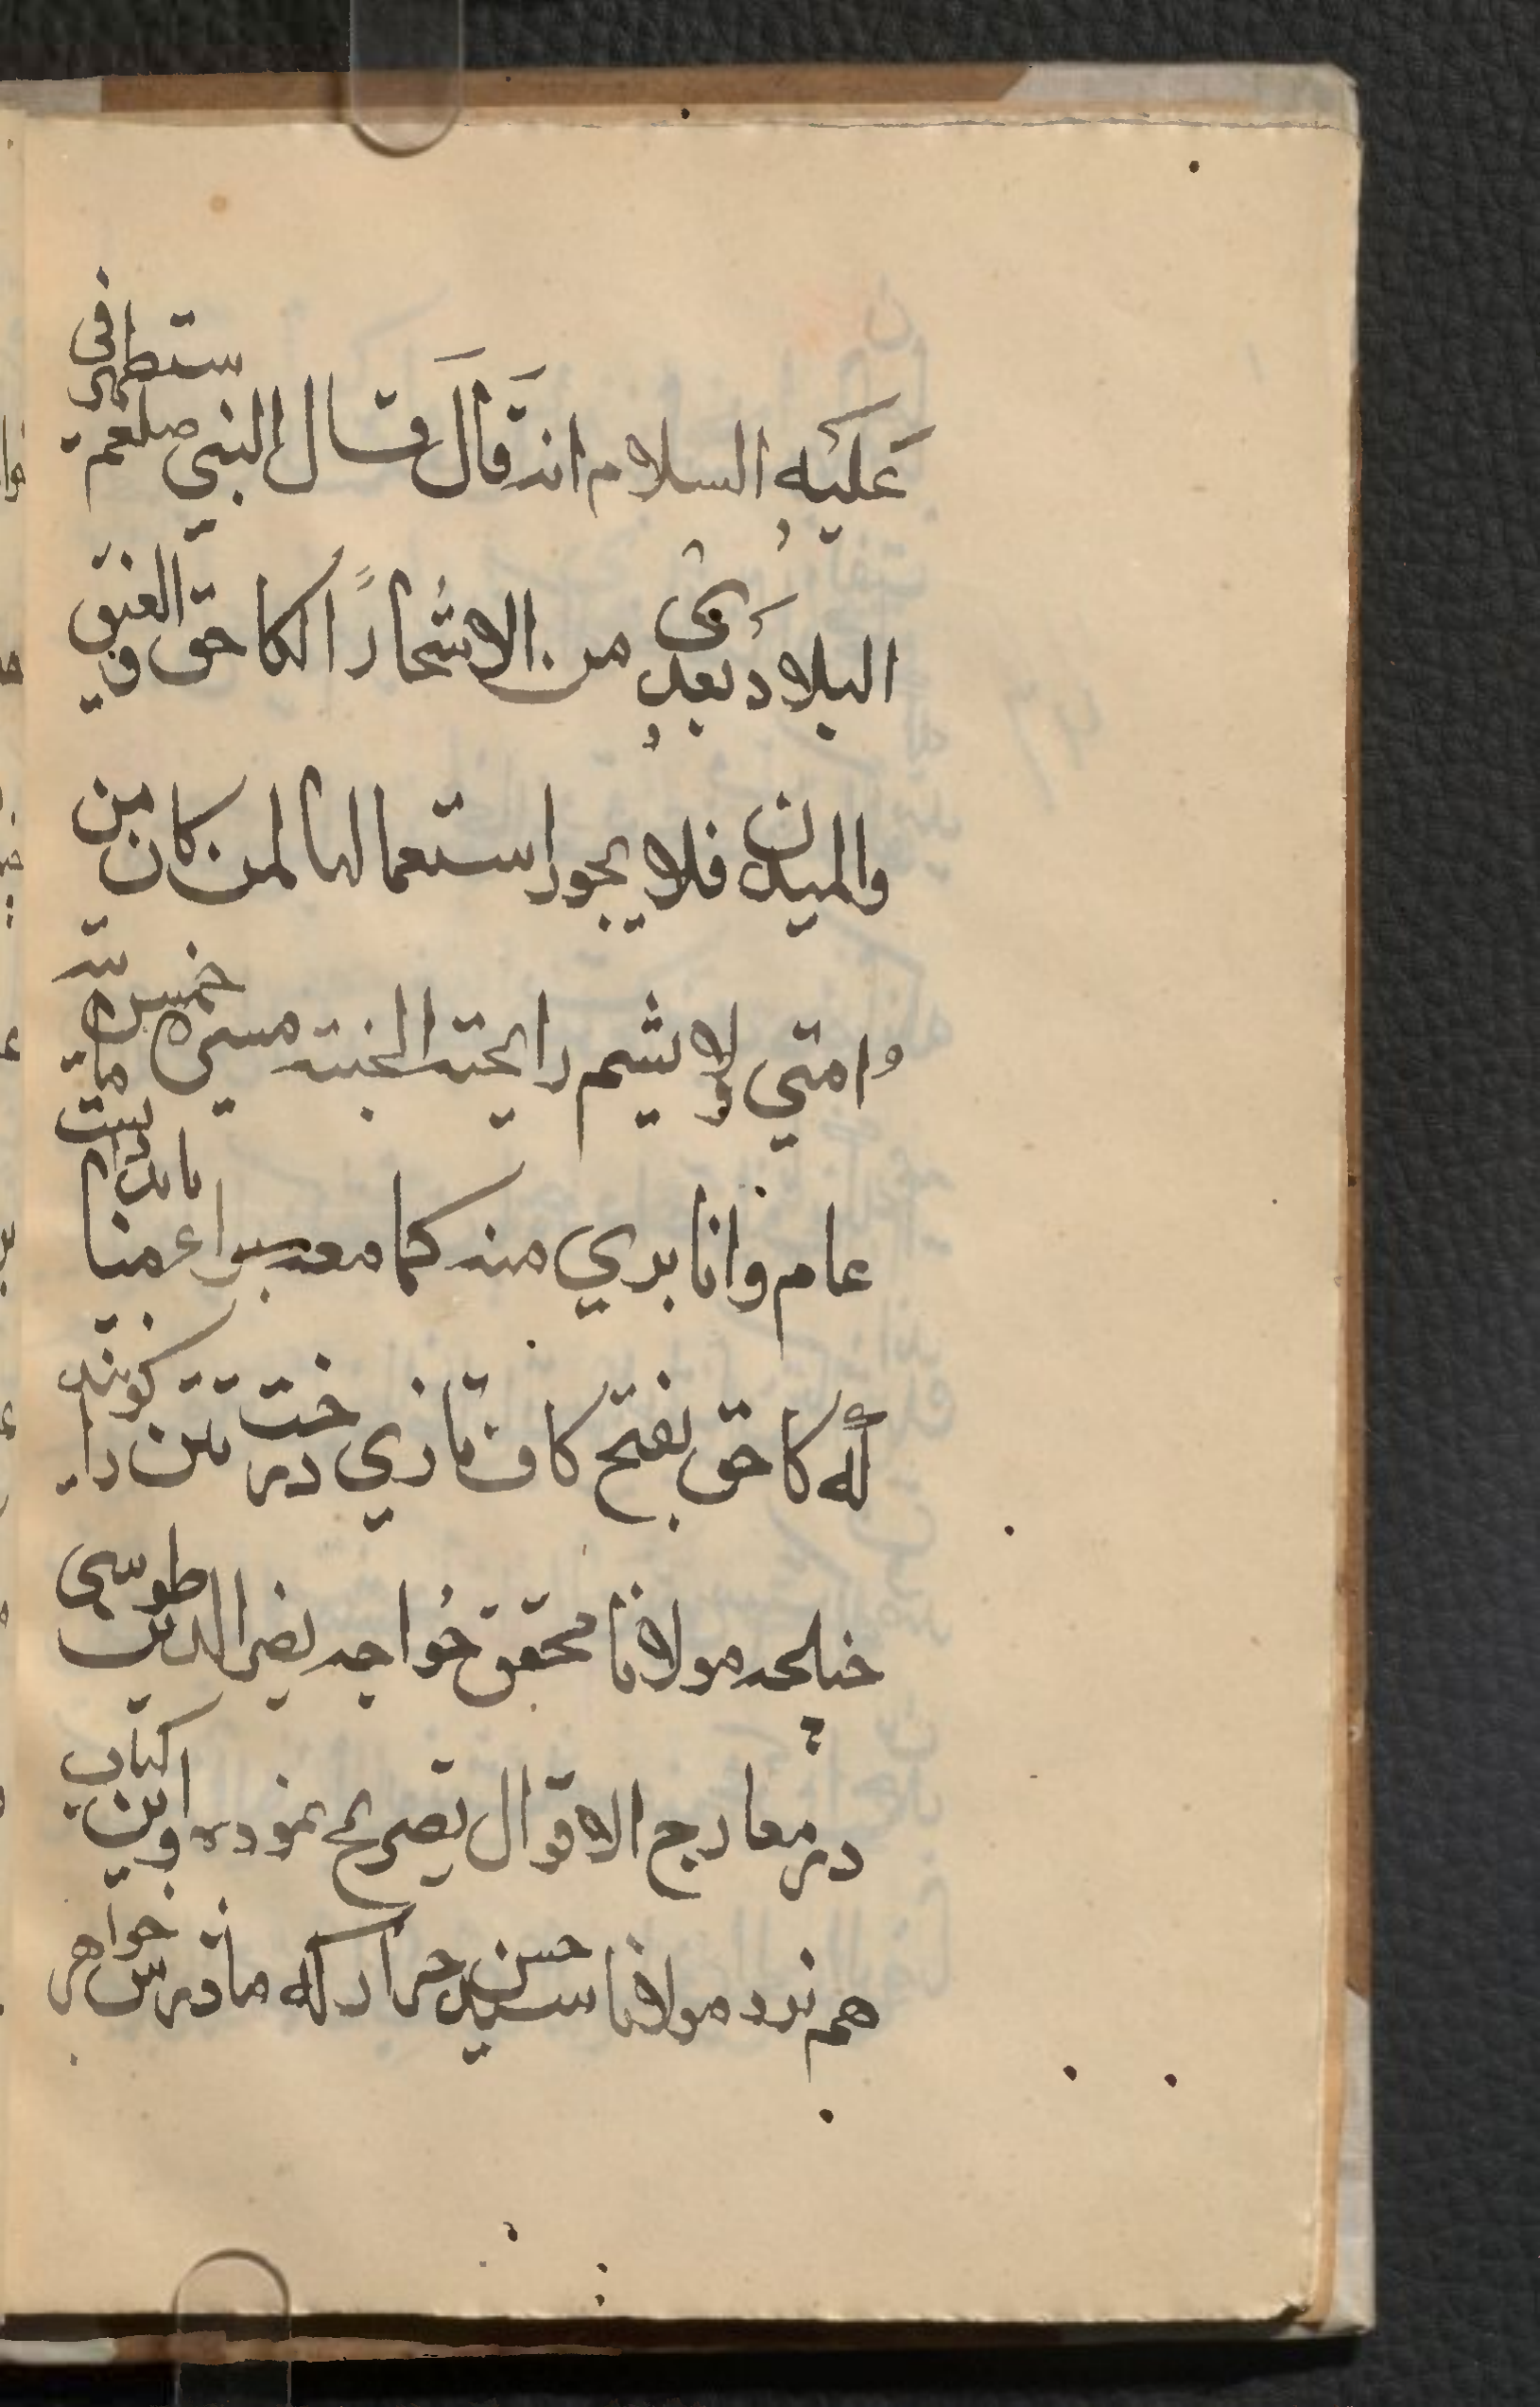 عَليَه السلام انه قَالَ قَال النبي صلعم ستظهر فى
البلاد بعدي من الاشجارً الكاحق الغبق و
والميدن فلا يجوز استعمالها لمن كان من
امتي لا يشم رايحته الجنته مسيره خمس ماته
عام وانا بري منه كما معه براء منا
له كاحق بفتح كاف تازي درخت تتن را كويند
خيلحه مولانا محقق خواجه نصر الدين طوسى
در معارج الاقوال تصريح نموده و اين كتاب
هم نزد مولانا سيد حسن كه مدرس